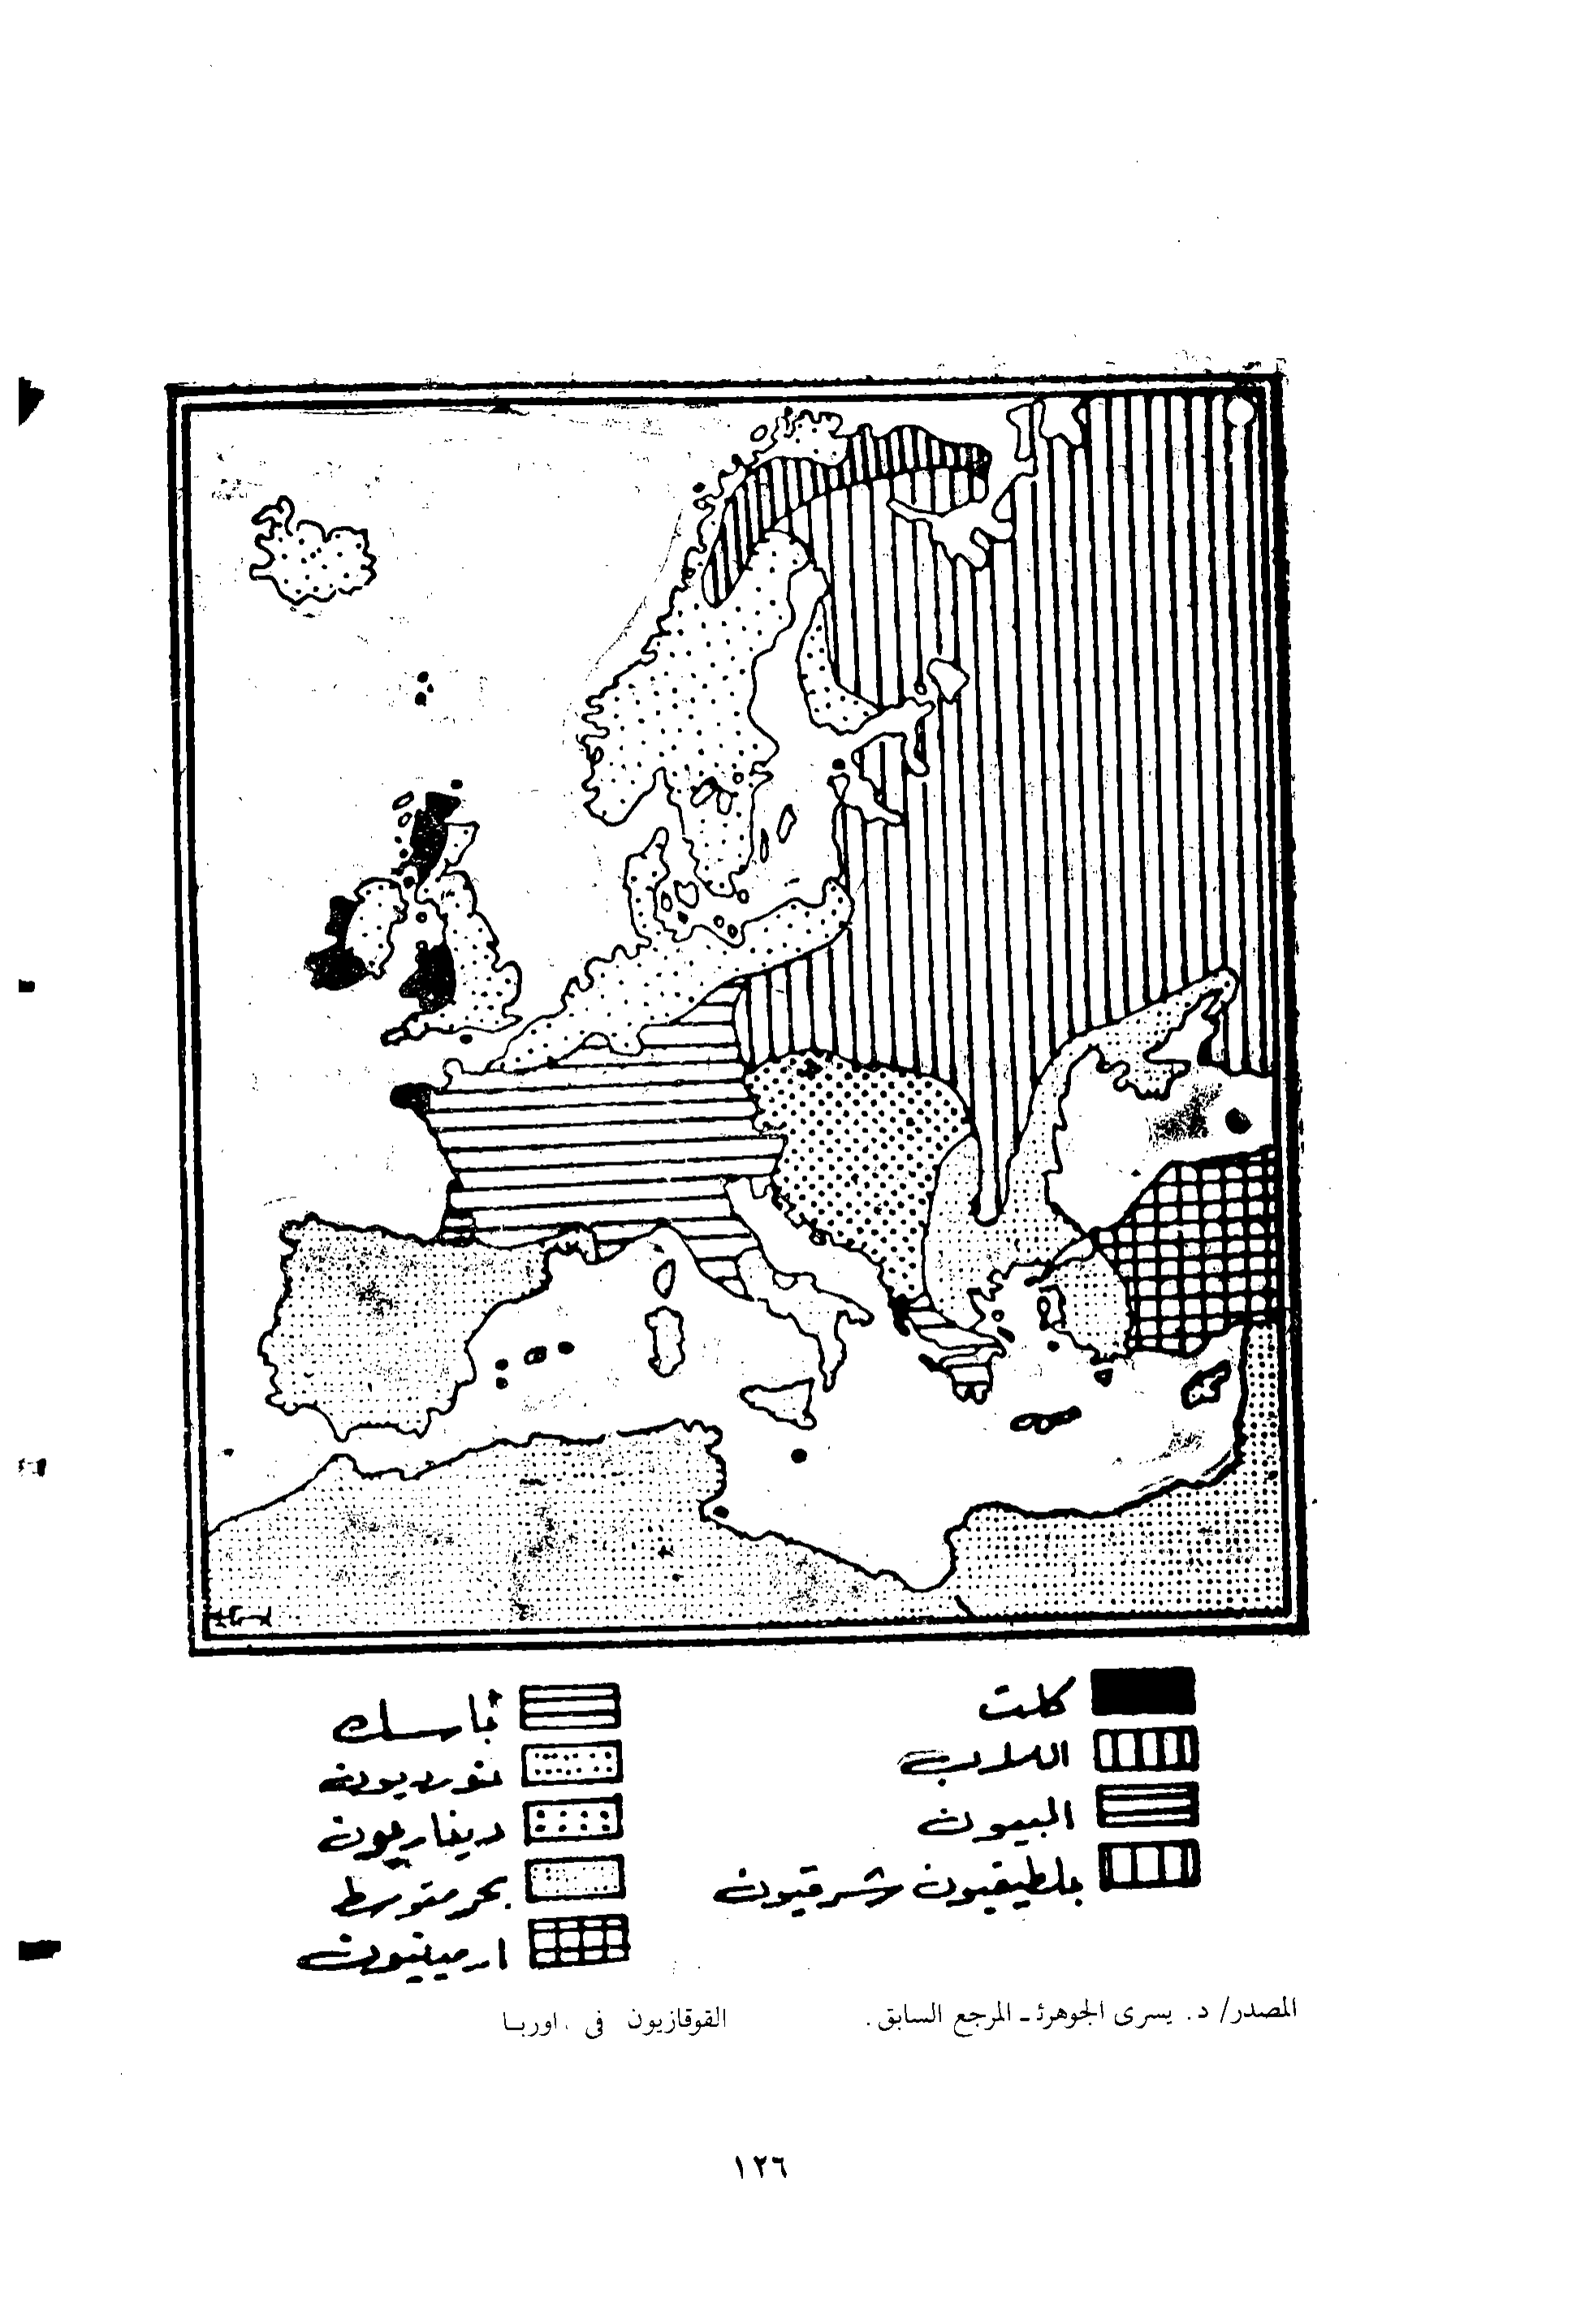 كلت
اللاب
البيون
بلطيقيون شرقيون
باسك
نورديون
ديناريون
بحر متوسط
ارمينيون
المصدر/ د. يسرى الجوهرى ـ المرجع السابق.
القوقازيون فى اوربا
١٢٦